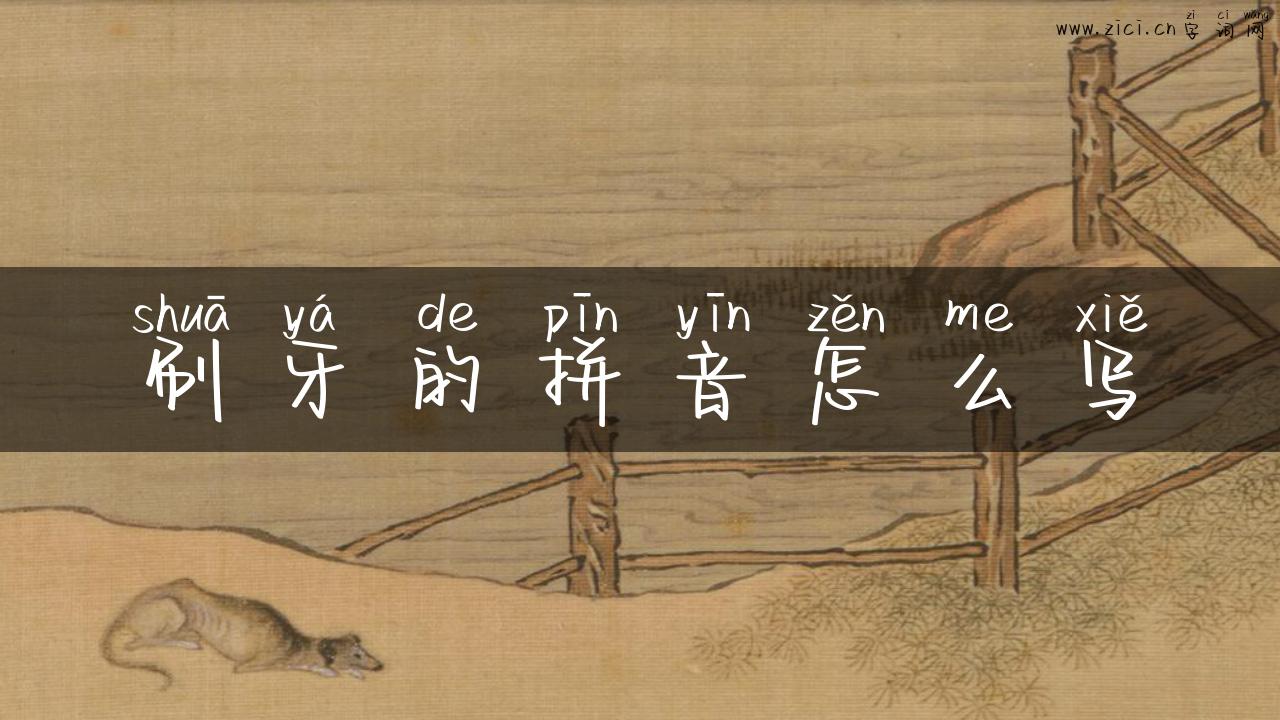 zi ci wang
www.zici.cn 字词网
shuā yá de pīn yīn zěn me xiě
刷牙的拼音怎么写